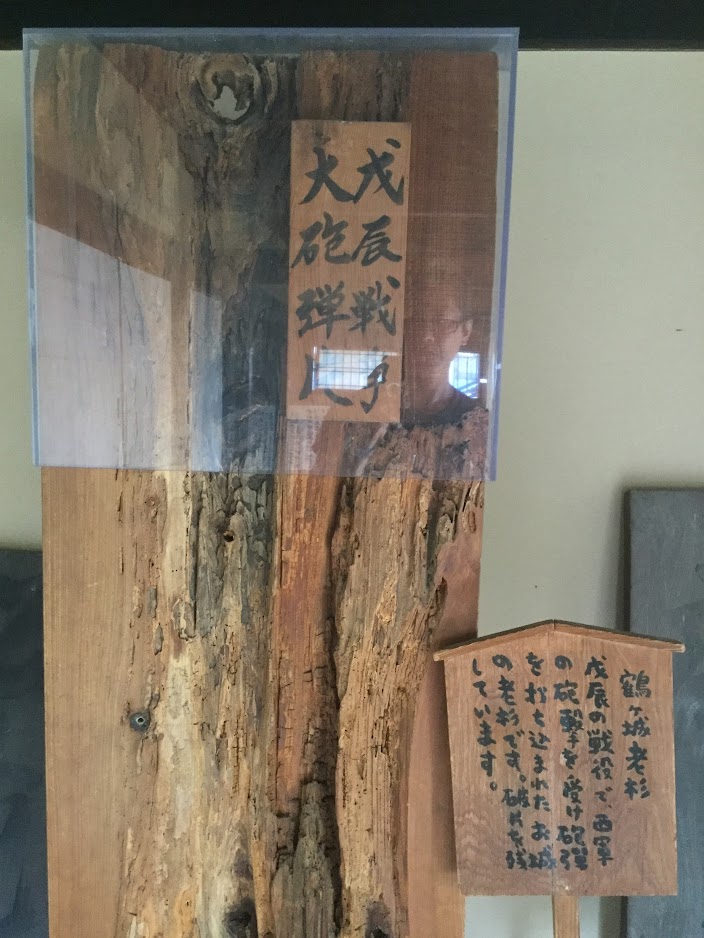 戊辰戦争
大砲弾片
鶴ヶ城老杉
戊辰の戦役で西軍
の砲撃を受け砲弾
を打ち込まれたお城
の老杉です。破片を残
しています。